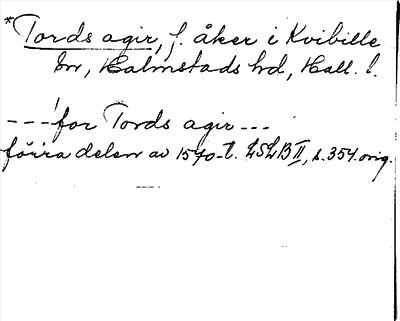 *Tords agir, f. åker i Kvibille
sn, Halmstads hd, Hall. l.
---for Tords agir---
förra delen av 1540-t. LSLB II, s. 354. orig.